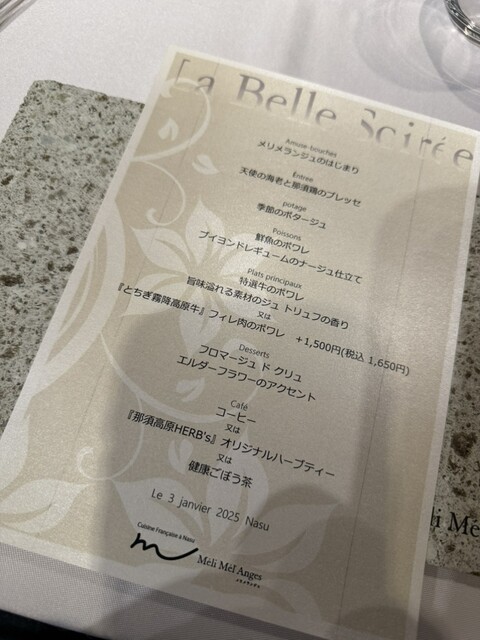 La Belle Soirée
Amuse-bouches
メリメランジュのはじまり
Entrée
天使の海老と那須鶏のプレッセ
potage
季節のポタージュ
Poissons
鮮魚のポワレ
ブイヨンドレギュームのナージュ仕立て
Plats principaux
特選牛のポワレ
旨味溢れる素材のジュ トリュフの香り
又は
『とちぎ霧降高原牛』フィレ肉のポワレ +1,500円(税込 1,650円)
Desserts
フロマージュ ド クリュ
エルダーフラワーのアクセント
Café
コーヒー
又は
『那須高原HERB's』オリジナルハーブティー
又は
健康ごぼう茶
Le 3 janvier 2025 Nasu
Cuisine Française à Nasu
Meli Mel Anges
li Me